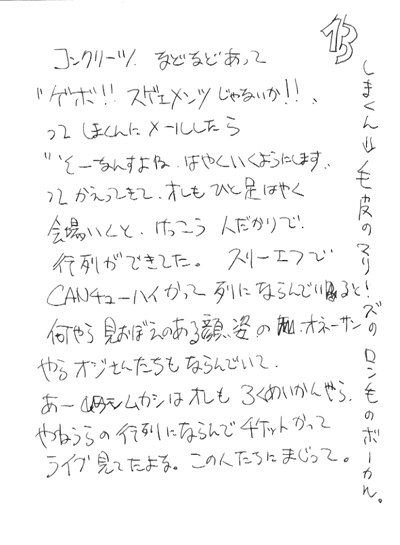 13
コンクリーツ、などなどあって
"ゲボ!! スゲエメンツじゃないか!!、
って しまくんに メールしたら
"そーなんすよね、はやくいくようにします、
って かえってきて、オレも ひと足はやく
会場いくと、けっこう 人だかりで、
行列ができてた。 スリーエフで
CANチューハイかって 列にならんでいると、
何やら 見おぼえのある顔、姿 の オネーサン
やら オジさんたちもならんでいて、
あー ムカシは オレも ろくめいかんやら、
やねうらの 行列にならんで チケットかって
ライブ 見てたよな。この人たちに まじって。
しまくん⇒毛皮のマリーズのロン毛のボーカル。